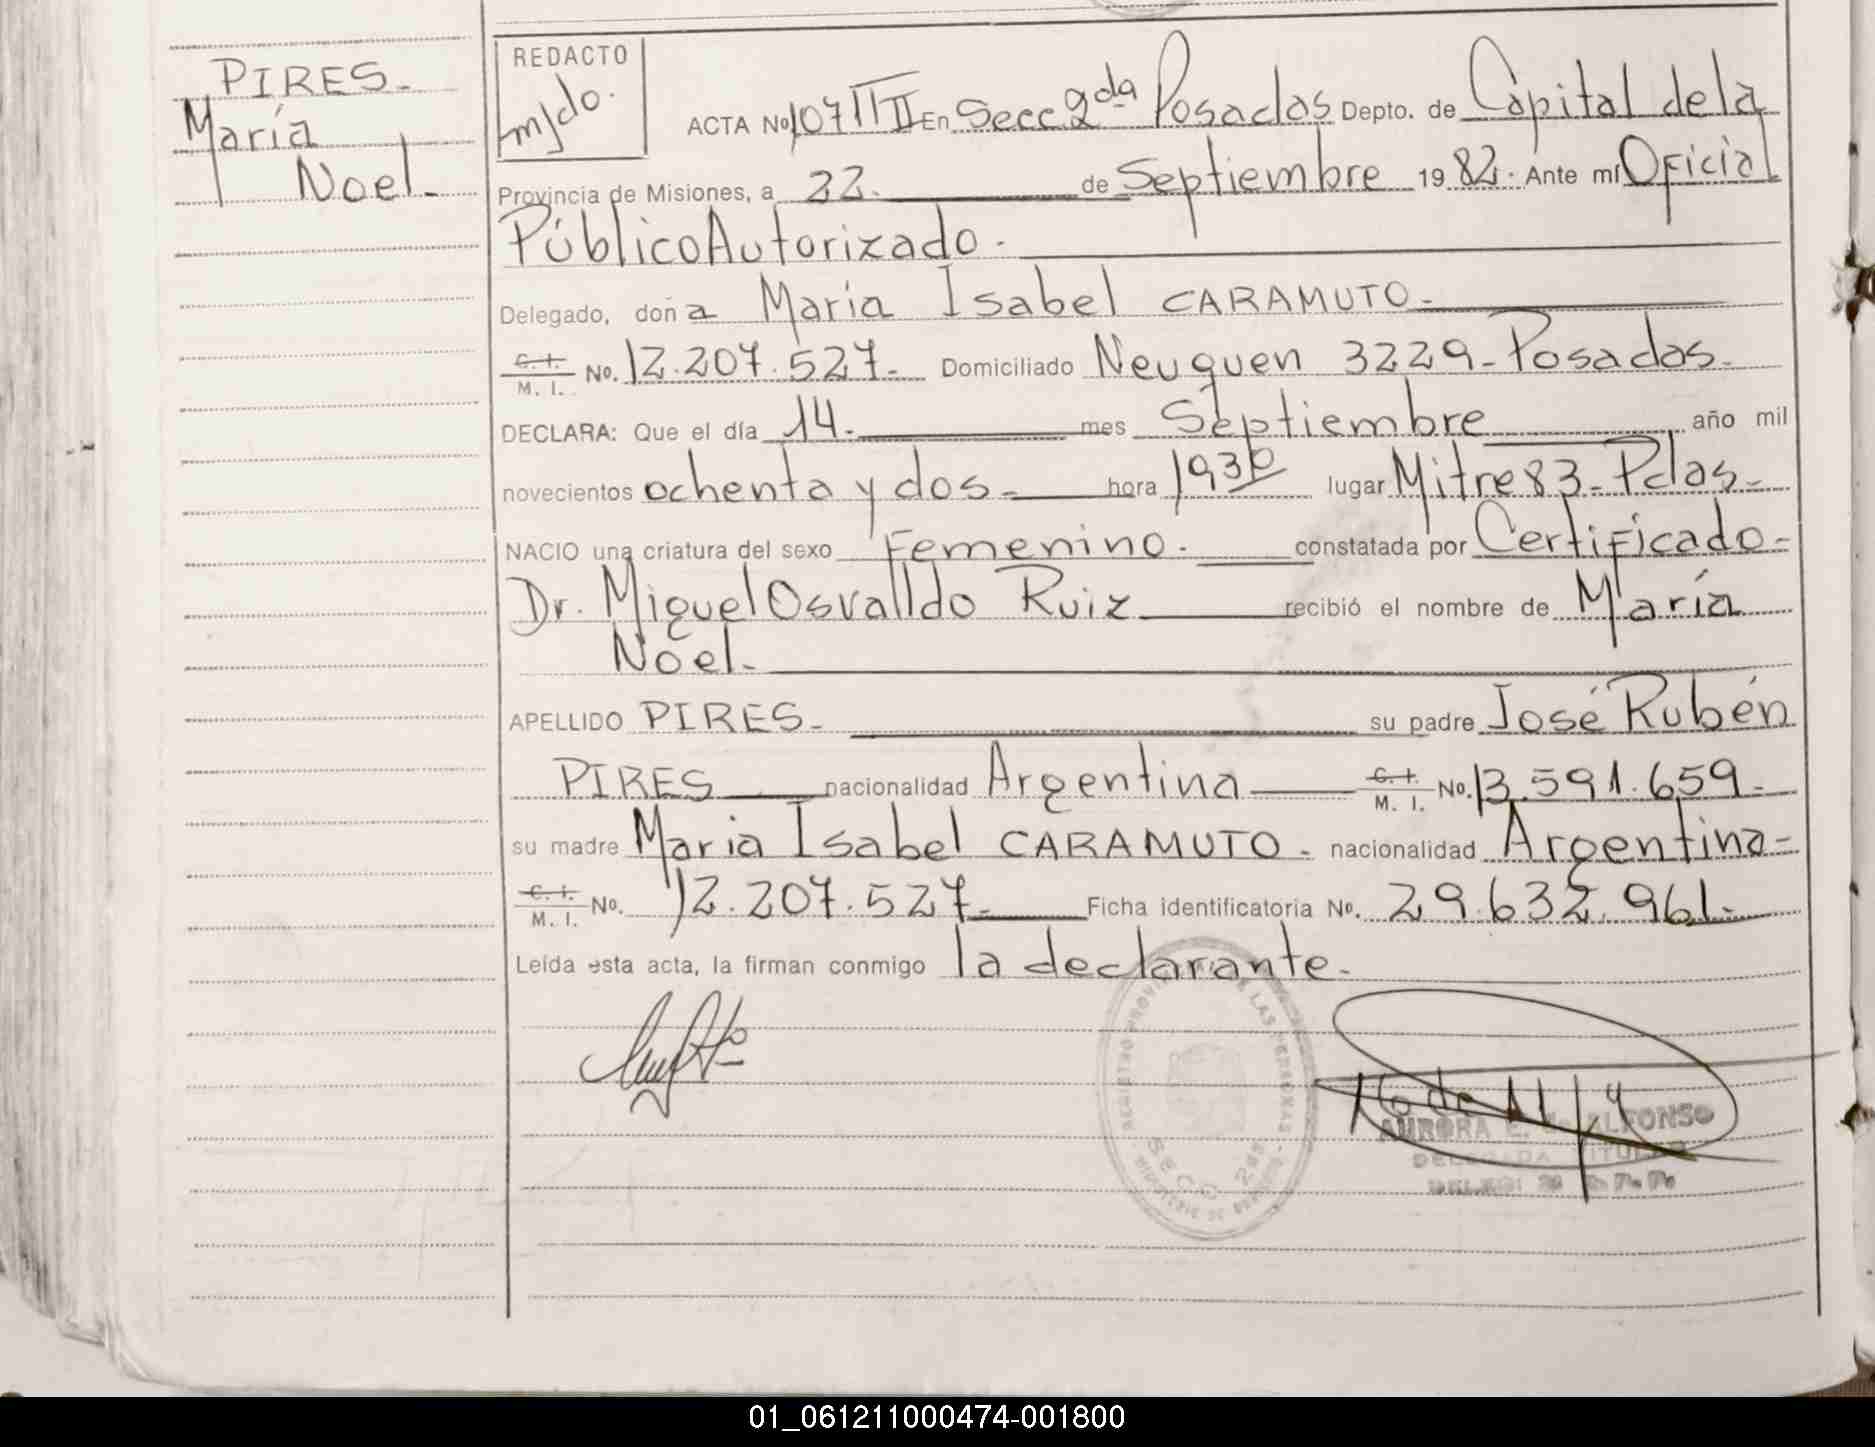 PIRES-
María
Noel-
REDACTO
m/do.
ACTA No 107 TIII En Secc 2da Posadas Depto. de Capital de la
Provincia de Misiones, a 22. de Septiembre 1982. Ante mí Oficial
Público Autorizado.
Delegado, doña María Isabel CARAMUTO-
C. I.
M. I. No. 12.207.527- Domiciliado Neuquen 3229- Posadas-
DECLARA: Que el día 14. mes Septiembre año mil
novecientos ochenta y dos- hora 1930 lugar Mitre 83- Pdas-
NACIO una criatura del sexo Femenino. constatada por Certificado-
Dr. Miguel Osvalldo Ruiz recibió el nombre de María
Noel-
APELLIDO PIRES- su padre José Rubén
PIRES nacionalidad Argentina C. I.
M. I. No. 13.591.659-
su madre Maria Isabel CARAMUTO- nacionalidad Argentina-
C. I.
M. I. No. 12.207.527- Ficha identificatoria No. 29.632.961-
Leída esta acta, la firman conmigo la declarante-
REGISTRO PROVINCIAL DE LAS PERSONAS
SECC 2da
AURORA ALFONSO
DELEGADA TITULAR
01_061211000474-001800